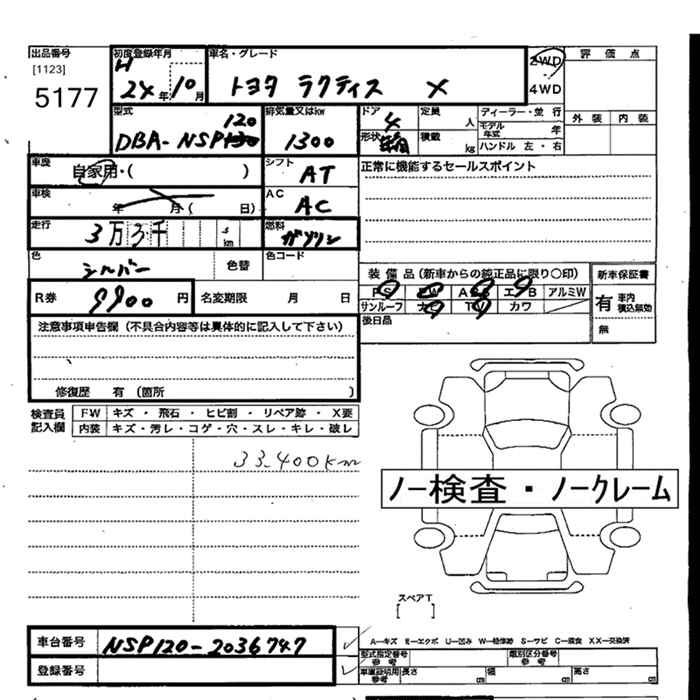 出品番号 初度登録年月 車名・グレード 2WD 評価点
[1123] H
5177 24年10月 トヨタ ラクティス X 4WD
型式 排気量又はkw ドア 定員 ディーラー・並行 外装 内装
120 4 人 モデル年式 年
DBA-NSP130 1300 形状 積載 kg ハンドル 左・右
車歴 シフト 正常に機能するセールスポイント
自家用・( ) AT
車検 AC
年 月 ( 日) AC
走行 燃料
3万3千 km ガソリン
色 色替 色コード
シルバー 装備品(新車からの純正品に限り〇印) 新車保証書
R券 9900円 名変期限 月 日 PS PW エアB アルミW 有 車内積込無効
サンルーフ ナビ TV カワ
後日品 無
注意事項申告欄(不具合内容等は具体的に記入して下さい)
修復歴 有 (箇所 )
検査員記入欄 FW キズ・飛石・ヒビ割・リペア跡・X要
内装 キズ・汚レ・コゲ・穴・スレ・キレ・破レ
33,400km
ノー検査・ノークレーム
スペアT
[ ]
車台番号 NSP120-2036747
A―キズ E―エクボ U―凹み W―板修跡 S―サビ C―腐食 XX―交換済
登録番号 型式指定番号 参考 類別区分番号 参考
車庫証明用 参考 長さ cm 幅 cm 高さ cm